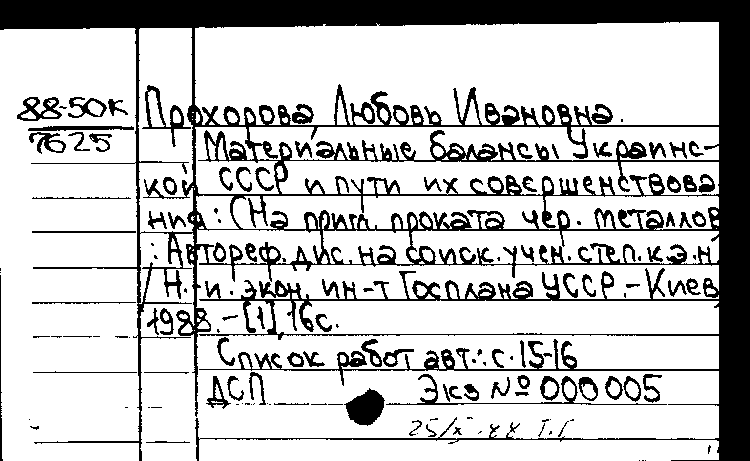 88-50К
7625
Прохорова, Любовь Ивановна.
Материальные балансы Украинс-
кой СССР и пути их совершенствова
ния: (На прим. проката чер. металлов
: Автореф. дис. на соиск. учен. степ. к.э.н
/ Н.-и. экон. ин-т Госплана УССР. - Киев,
1988. - [1], 16с.
Список работ авт.: с. 15-16
ДСП Экз № 000005
25/X-88